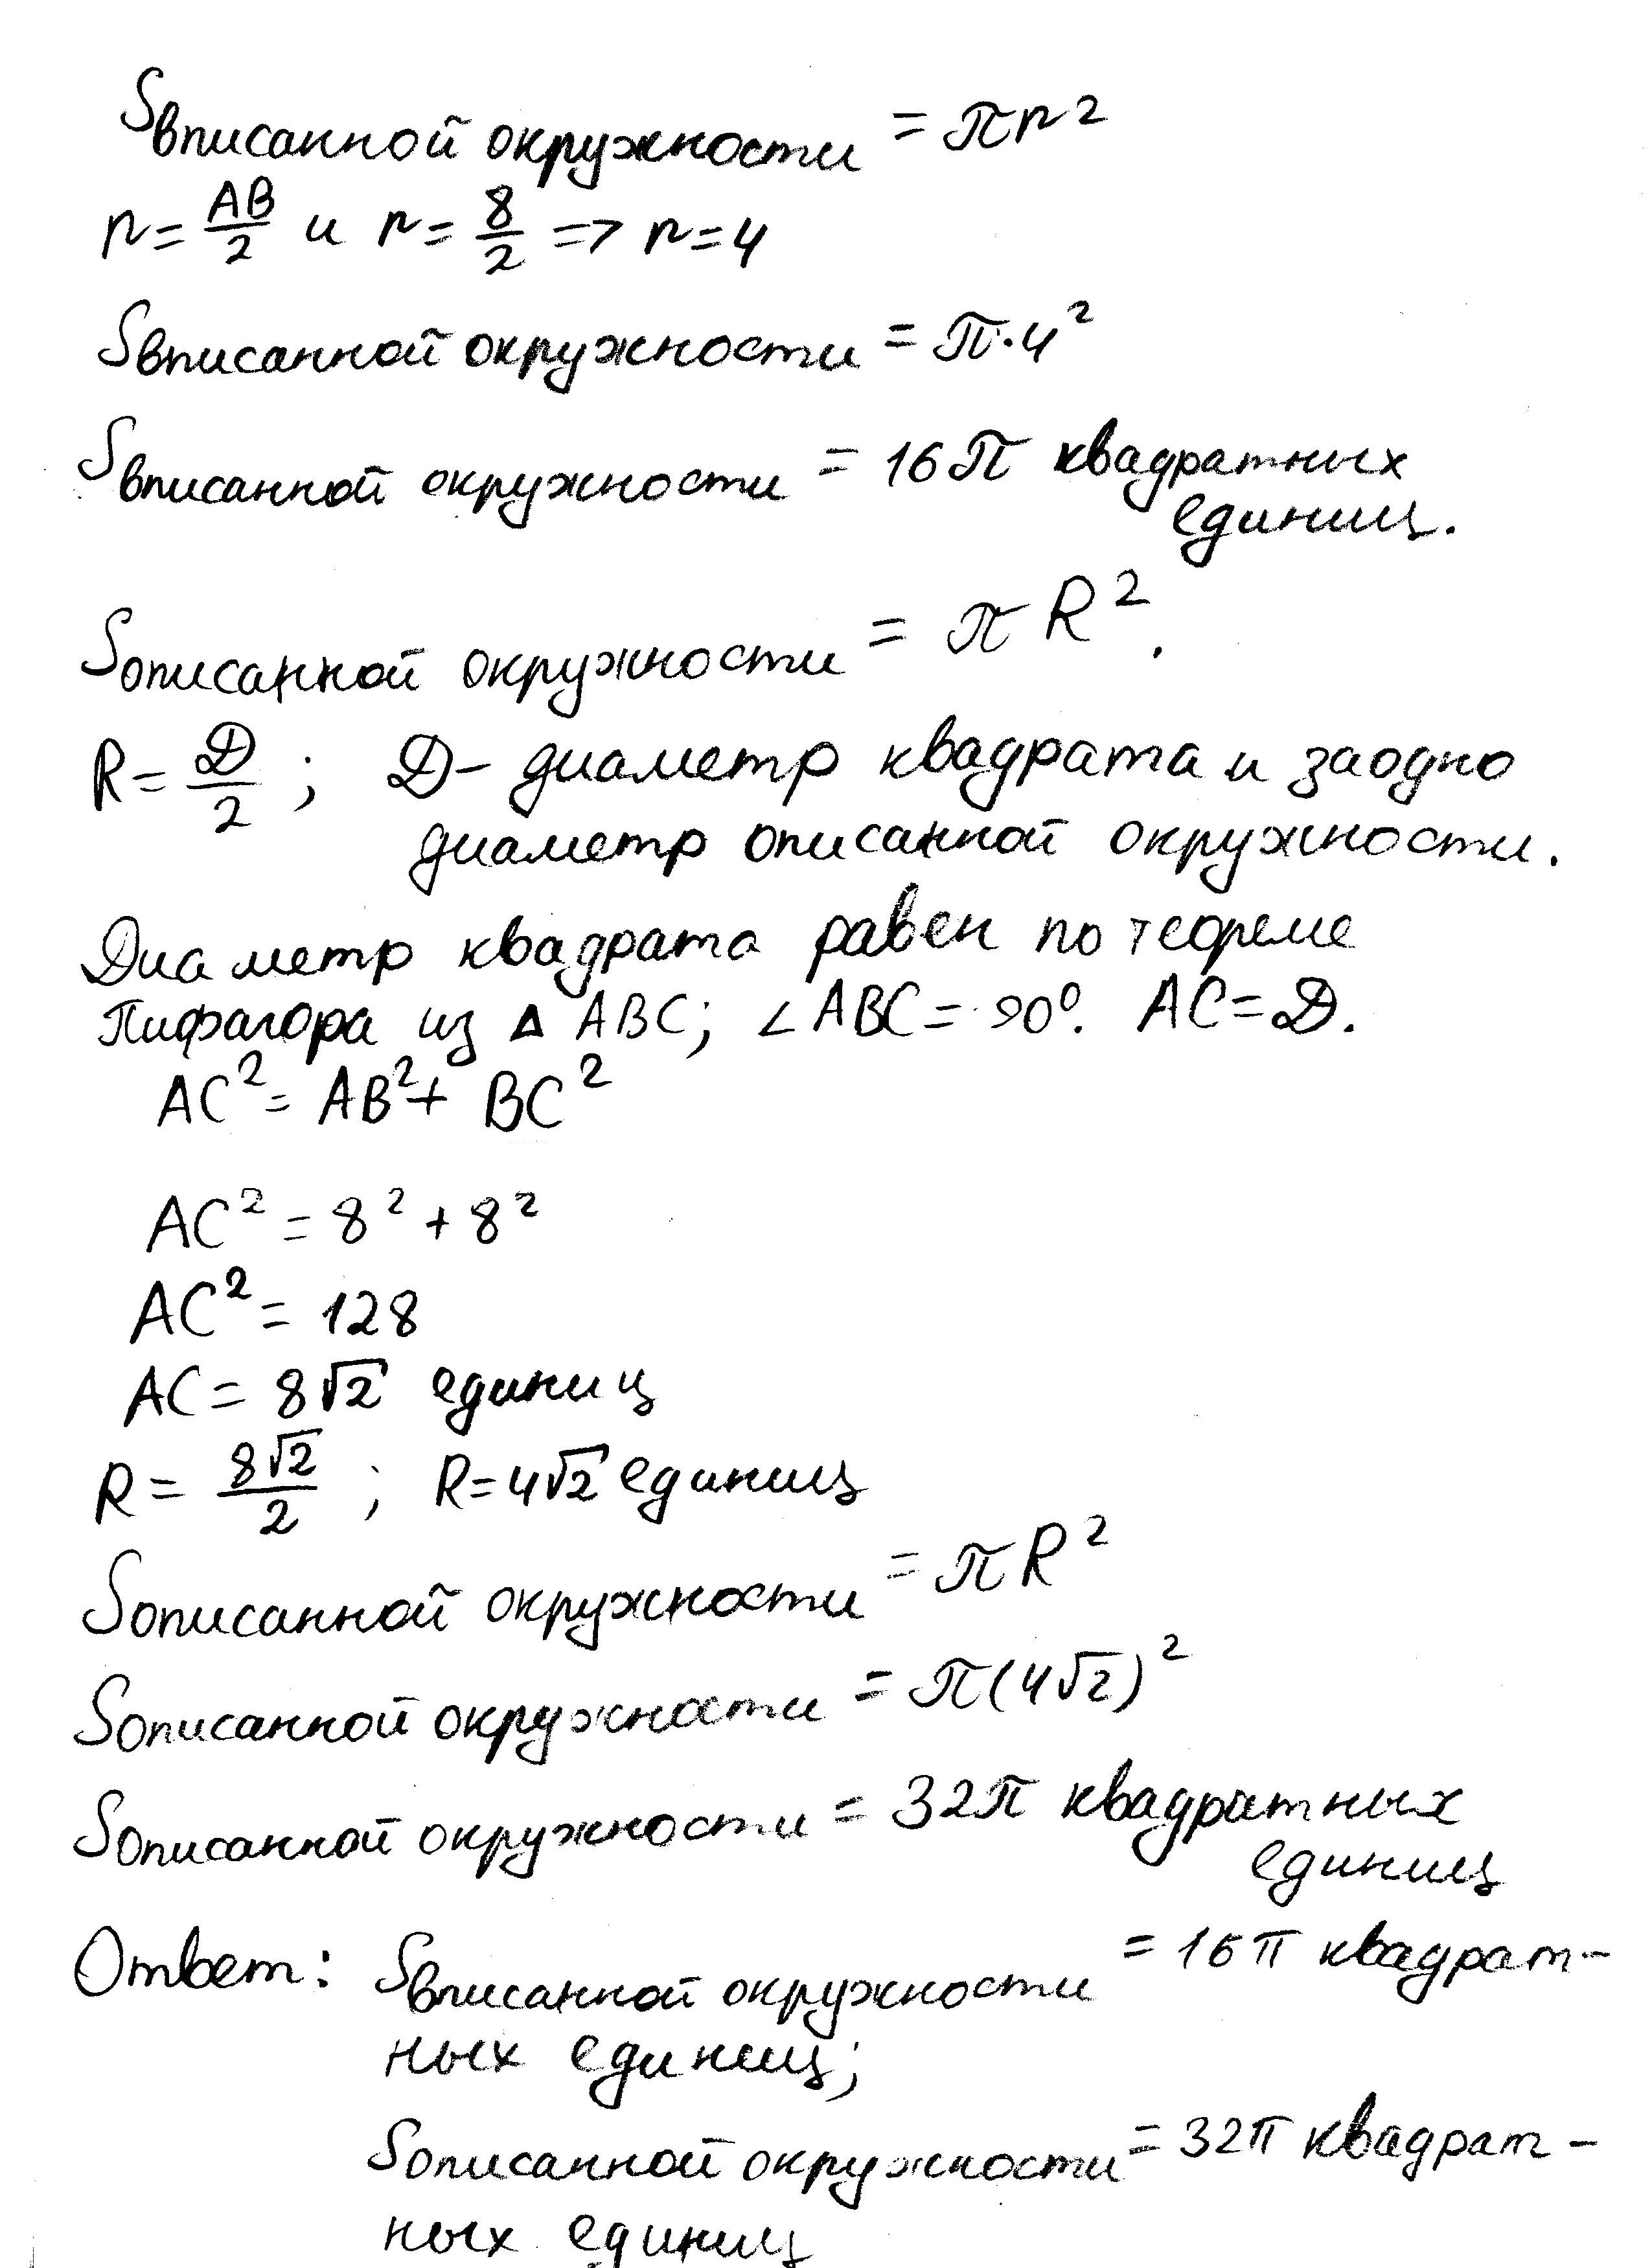 Sвписанной окружности = πr²
r = AB/2 и r = 8/2 => r = 4
Sвписанной окружности = π·4²
Sвписанной окружности = 16π квадратных
единиц.
Sописанной окружности = πR².
R = D/2 ; D - диаметр квадрата и заодно
диаметр описанной окружности.
Диаметр квадрата равен по теореме
Пифагора из Δ ABC; ∠ABC = 90°. AC = D.
AC² = AB² + BC²
AC² = 8² + 8²
AC² = 128
AC = 8√2 единиц
R = 8√2/2 ; R = 4√2 единиц
Sописанной окружности = πR²
Sописанной окружности = π(4√2)²
Sописанной окружности = 32π квадратных
единиц
Ответ: Sвписанной окружности = 16π квадрат-
ных единиц;
Sописанной окружности = 32π квадрат-
ных единиц